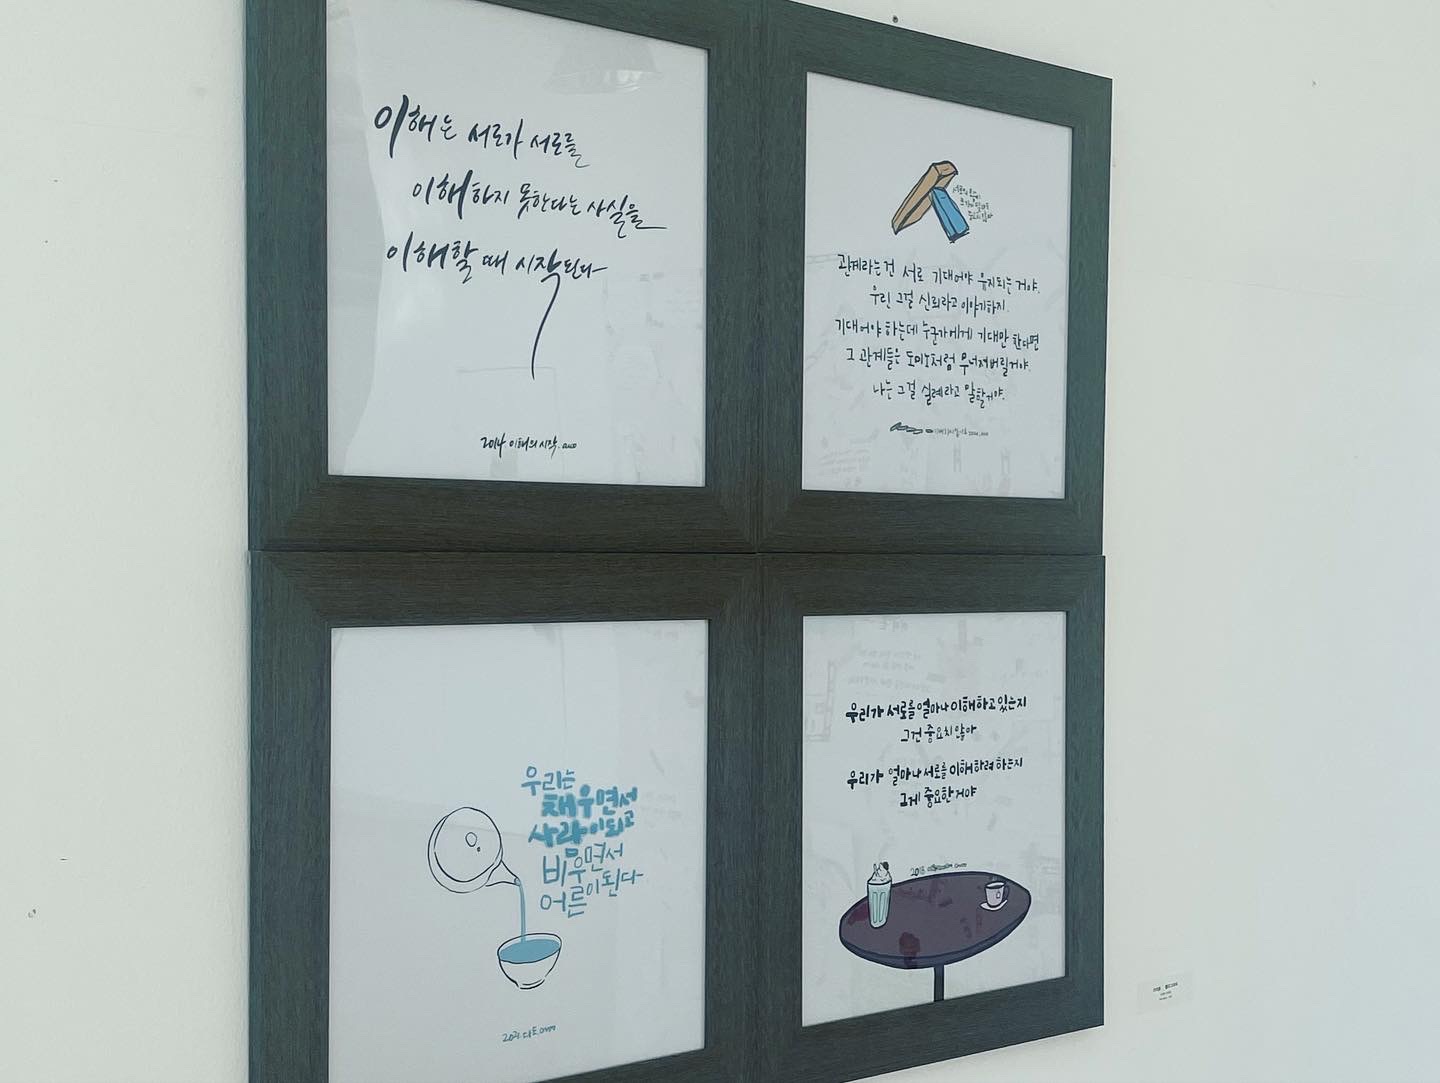 이해는 서로가 서로를
이해하지 못한다는 사실을
이해할 때 시작된다
2014 이해의 시작.
관계라는건 서로 기대어야 유지되는거야.
우린 그걸 신뢰라고 이야기하지.
기대어야 하는데 누군가에게 기대만 한다면
그 관계들은 도미노처럼 무너져버릴거야.
나는 그걸 실례라고 말할거야.
우리는
채우면서
사람이되고
비우면서
어른이된다
우리가 서로를 얼마나 이해하고 있는지
그건 중요치 않아
우리가 얼마나 서로를 이해하려 하는지
그게 중요한거야